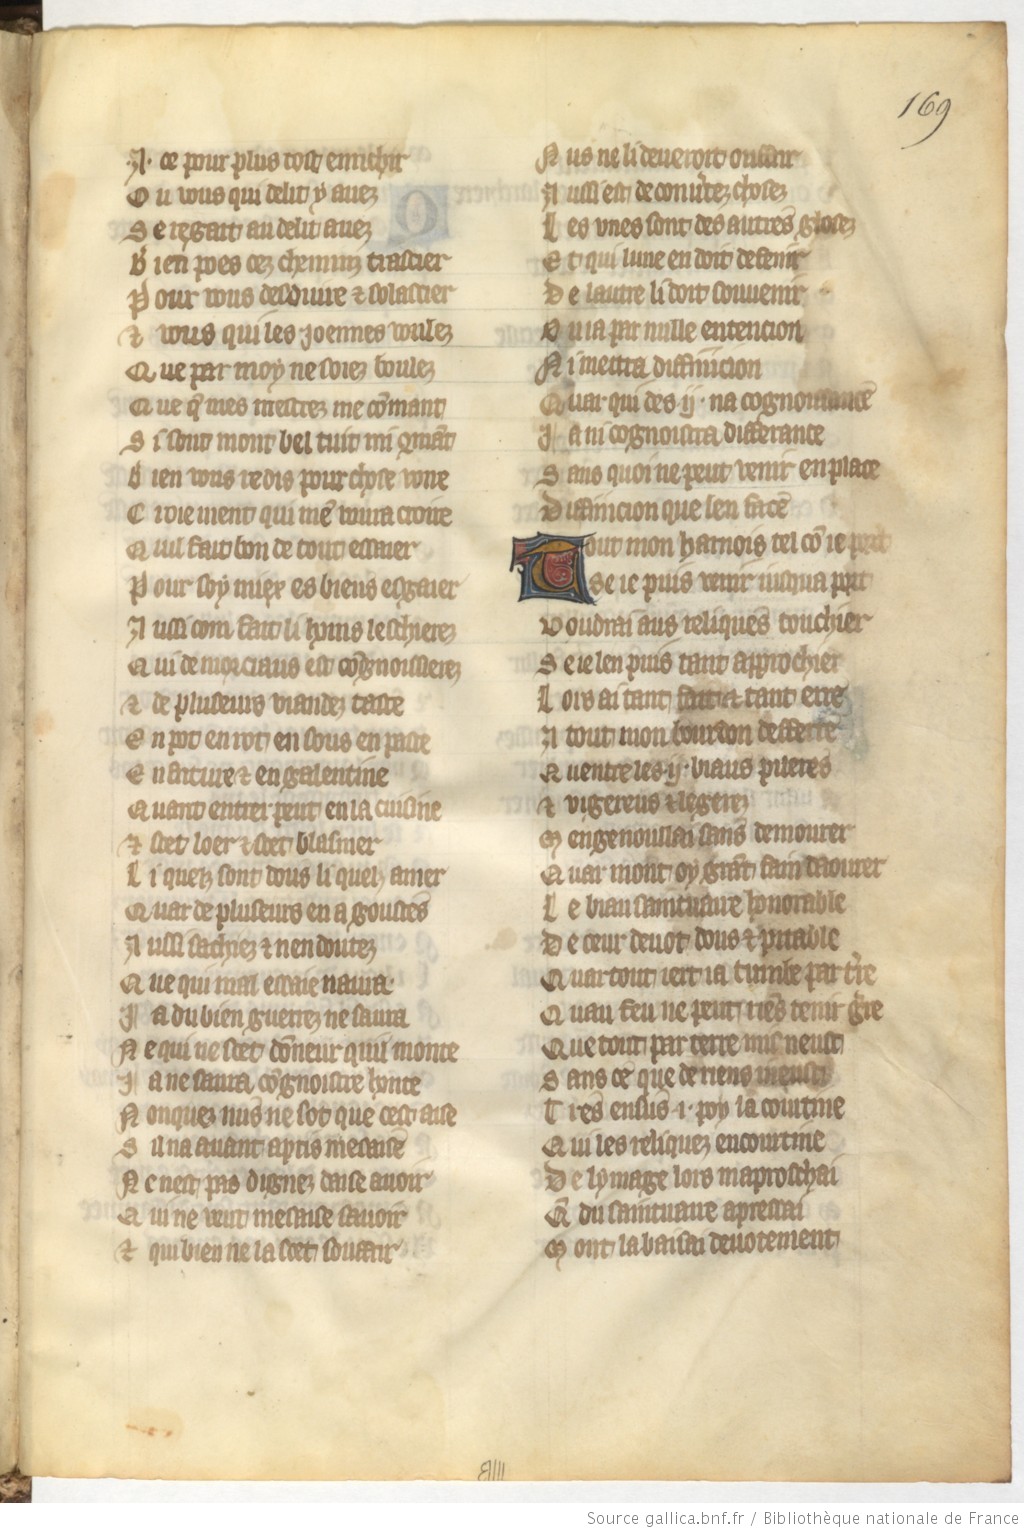 169
A ce pour plus tost enrichir
O u vous qui delit y avez
S e regart au delit avez
B ien poes cez chemins tracier
P our vous deduire & solacier
& vous qui les joennes voulez
Q ue par moy ne soiez boulez
Q ue q̃ mes mestrez me cōmant
S i sont mont bel tuit mi qmāt
B ien vous redis pour chose voire
C roie ment qui mē voura croire
Q uil fait bon de tout essaier
P our soy miex es biens esgaier
A ussi com fait li bons leschierez
Q ui de morciaus est cōgnoissierez
& de pluseurs viandez taste
E n pot en rost en sous en paste
E n friture & en galentine
Q uant entrer peut en la cuisine
& scet loer & scet blasmer
L i quelz sont dous li quelz amer
Q uar de pluseurs en a goustes
A ussi sachiez & nen doutez
Q ue qui mal essaie naura
J a du bien guerrez ne saura
N e qui ne scet dōneur qui monte
J a ne saura cōgnoistre honte
N onquez nus ne sot que cest aise
S il na avant apris mesaise
N e nest pas dignez daise avoir
Q ui ne veut mesaise savoir
& qui bien ne la scet souffrir
N us ne li deveroit offrir
A ussi est de contrez chosez
L es vnes sont des autres glosez
E t qui lune en doit defenir
D e lautre li doit souvenir
O u ia par nulle entencion
N i mettra diffinicion
Q uar qui des ij na cognoissance
J a ni cognoistra differance
S ans quoi ne peut venir en place
D iffinicion que len face
T out mon harnois tel cō ie port
se ie puis venir iusqua port
V oudrai aus reliques touchier
S e ie len puis tant approchier
L ors ai tant fait & tant erre
A tout mon bourdon defferre
Q uentre les ij biaus pileres
& vigereus & legerez
M engenoillai sans demourer
Q uar mont oy grāt fain daourer
L e biau saintuaire honorable
D e ceur devot dous & pitable
Q uar tout iert ia tumbe par tr̃e
Q uau feu ne peut riēs tenir gr̃re
Q ue tout par terre mis neust
S ans ce que de riens meust
T res ensus i poy la courtine
Q ui les reliquez encourtine
D e lymage lors maproschai
Q̃ du saintuaire apressai
M ont la baisai devotement
Source gallica.bnf.fr / Bibliothèque nationale de France